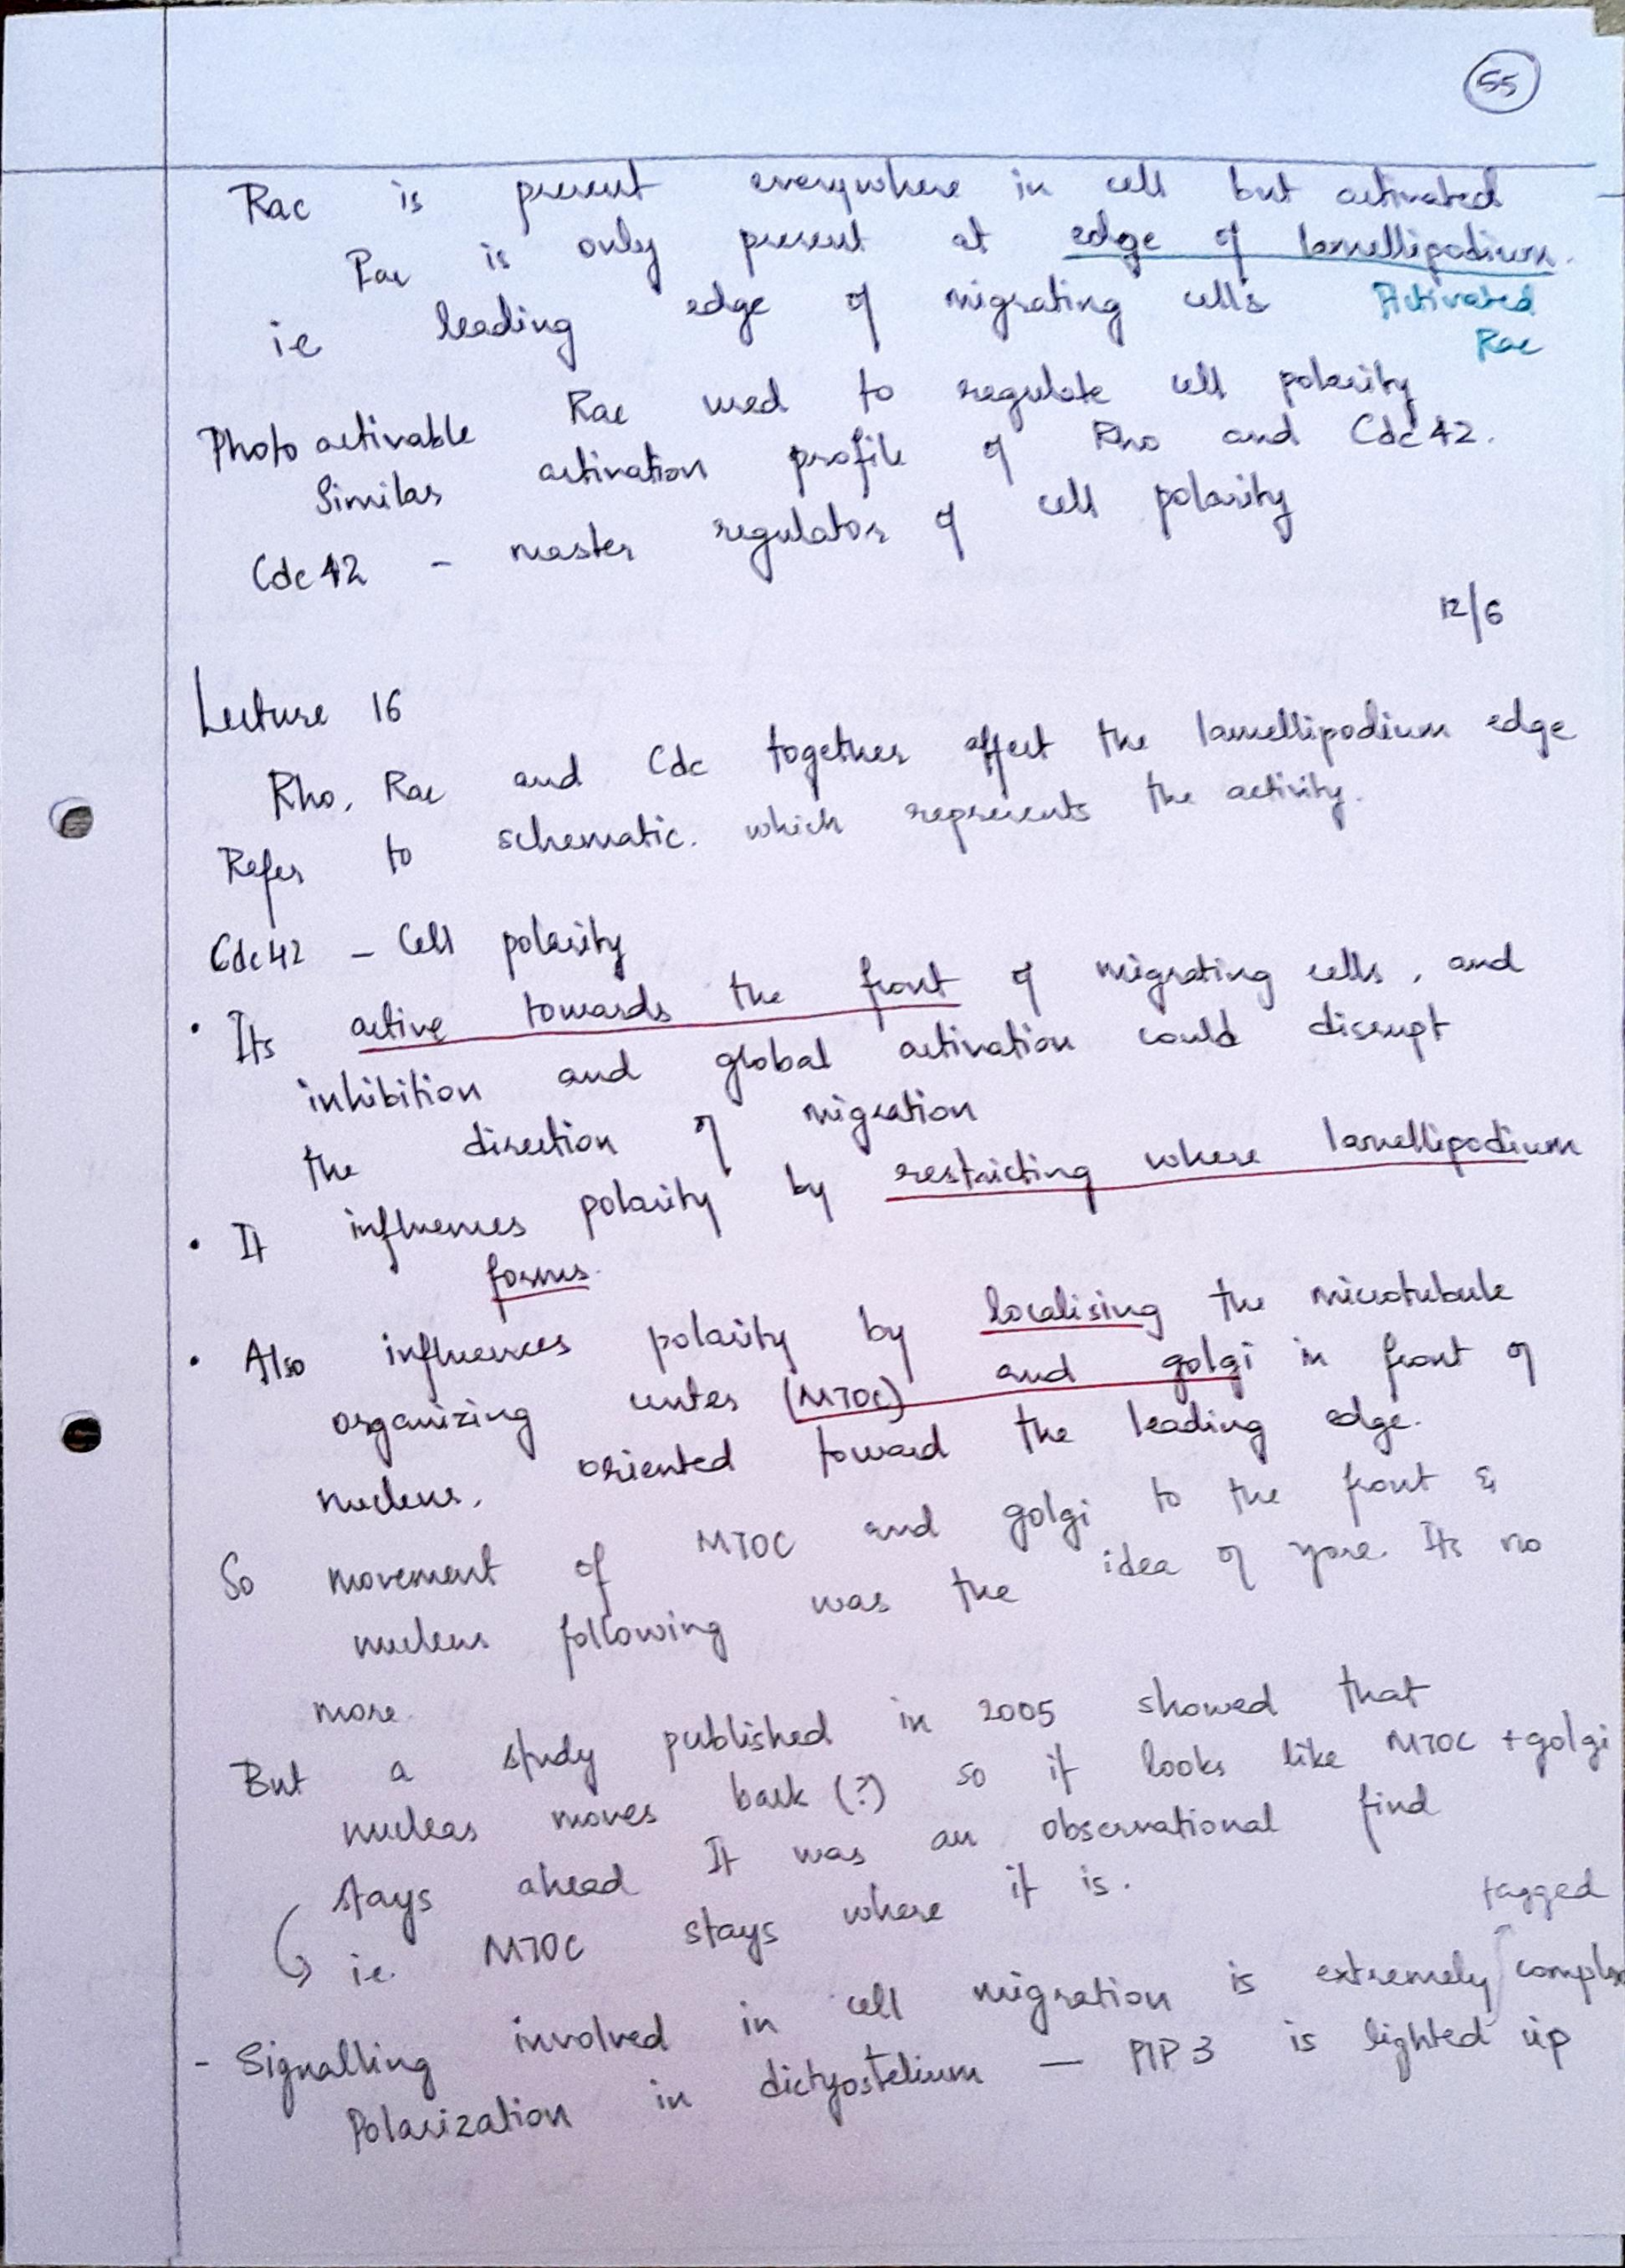 55
Rac is present everywhere in cell but activated
Rac is only present at edge of lamellipodium.
ie leading edge of migrating cells Activated
Rac
Photo activable Rac used to regulate cell polarity
Similar activation profile of Rho and Cdc42.
Cdc42 - master regulator of cell polarity
12/6
Lecture 16
Rho, Rac and Cdc together affect the lamellipodium edge
Refer to schematic. which represents the activity.
Cdc42 - Cell polarity
• Its active towards the front of migrating cells, and
inhibition and global activation could disrupt
the direction of migration
• It influences polarity by restricting where lamellipodium
forms.
• Also influences polarity by localising the microtubule
organizing center (MTOC) and golgi in front of
nucleus, oriented toward the leading edge.
So movement of MTOC and golgi to the front &
nucleus following was the idea of yore. Its no
more.
But a study published in 2005 showed that
nucleas moves back (?) so it looks like MTOC + golgi
stays ahead It was an observational find
ie. MTOC stays where it is.
tagged
- Signalling involved in cell migration is extremely complex
Polarization in dictyostelium - PIP3 is lighted up